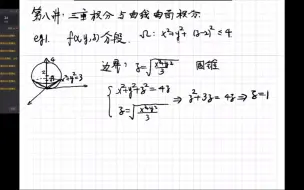 第八讲：三重积分与曲线曲面积分
eg1. f(x,y,z)分段. Ω: x²+y²+(z-2)² ≤ 4
边界: z=√(x²+y²)/3 圆锥
x²+y²=3
{ x²+y²+z²=4z
z=√(x²+y²)/3 ⇒ z²+3z²=4z ⇒ z=1